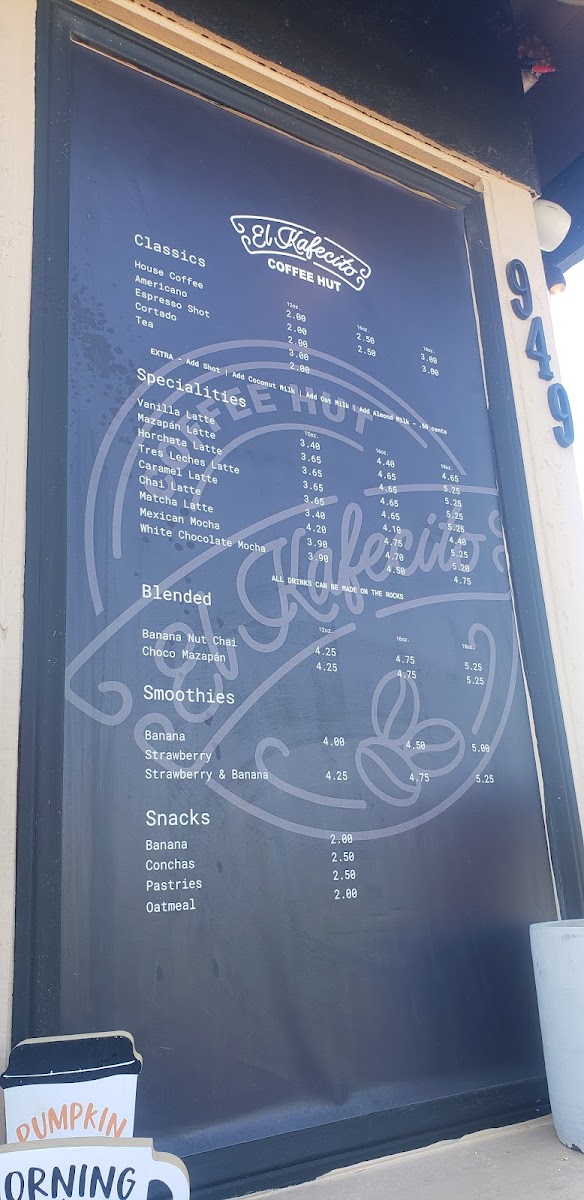 El Kafecito
COFFEE HUT
Classics
12oz. 16oz. 18oz.
House Coffee 2.00 2.50 3.00
Americano 2.00 2.50 3.00
Espresso Shot 2.00
Cortado 3.00
Tea 2.00
EXTRA - Add Shot | Add Coconut Milk | Add Oat Milk | Add Almond Milk - .50 cents
Specialities
12oz. 16oz. 18oz.
Vanilla Latte 3.40 4.40 4.65
Mazapán Latte 3.65 4.65 5.25
Horchata Latte 3.65 4.65 5.25
Tres Leches Latte 3.65 4.65 5.25
Caramel Latte 3.65 4.65 5.25
Chai Latte 3.40 4.10 4.40
Matcha Latte 4.20 4.75 5.25
Mexican Mocha 3.90 4.70 5.20
White Chocolate Mocha 3.90 4.50 4.75
ALL DRINKS CAN BE MADE ON THE ROCKS
Blended
12oz. 16oz. 18oz.
Banana Nut Chai 4.25 4.75 5.25
Choco Mazapán 4.25 4.75 5.25
Smoothies
Banana 4.00 4.50 5.00
Strawberry
Strawberry & Banana 4.25 4.75 5.25
Snacks
Banana 2.00
Conchas 2.50
Pastries 2.50
Oatmeal 2.00
COFFEE HUT
El Kafecito
949
PUMPKIN
ORNING